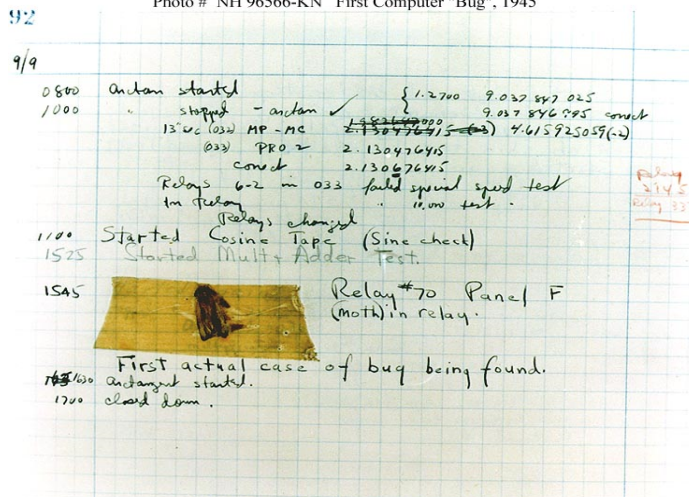 Photo # NH 96566-KN First Computer "Bug", 1945
92
9/9
0800 antan started
1000 " stopped - antan ✓ { 1.2700 9.037 847 025
9.037 846 995 conect
13"uc (032) MP - MC 2.130476415 (-3) 4.615925059(-2)
(033) PRO 2 2.130476415
conect 2.130676415
Relays 6-2 in 033 failed special speed test
In Relay " 11.000 test.
Relays changed
1100 Started Cosine Tape (Sine check)
1525 Started Mult + Adder Test.
1545 Relay #70 Panel F
(moth) in relay.
First actual case of bug being found.
1630 antangent started.
1700 closed down.
Relay
2145
Relay 33